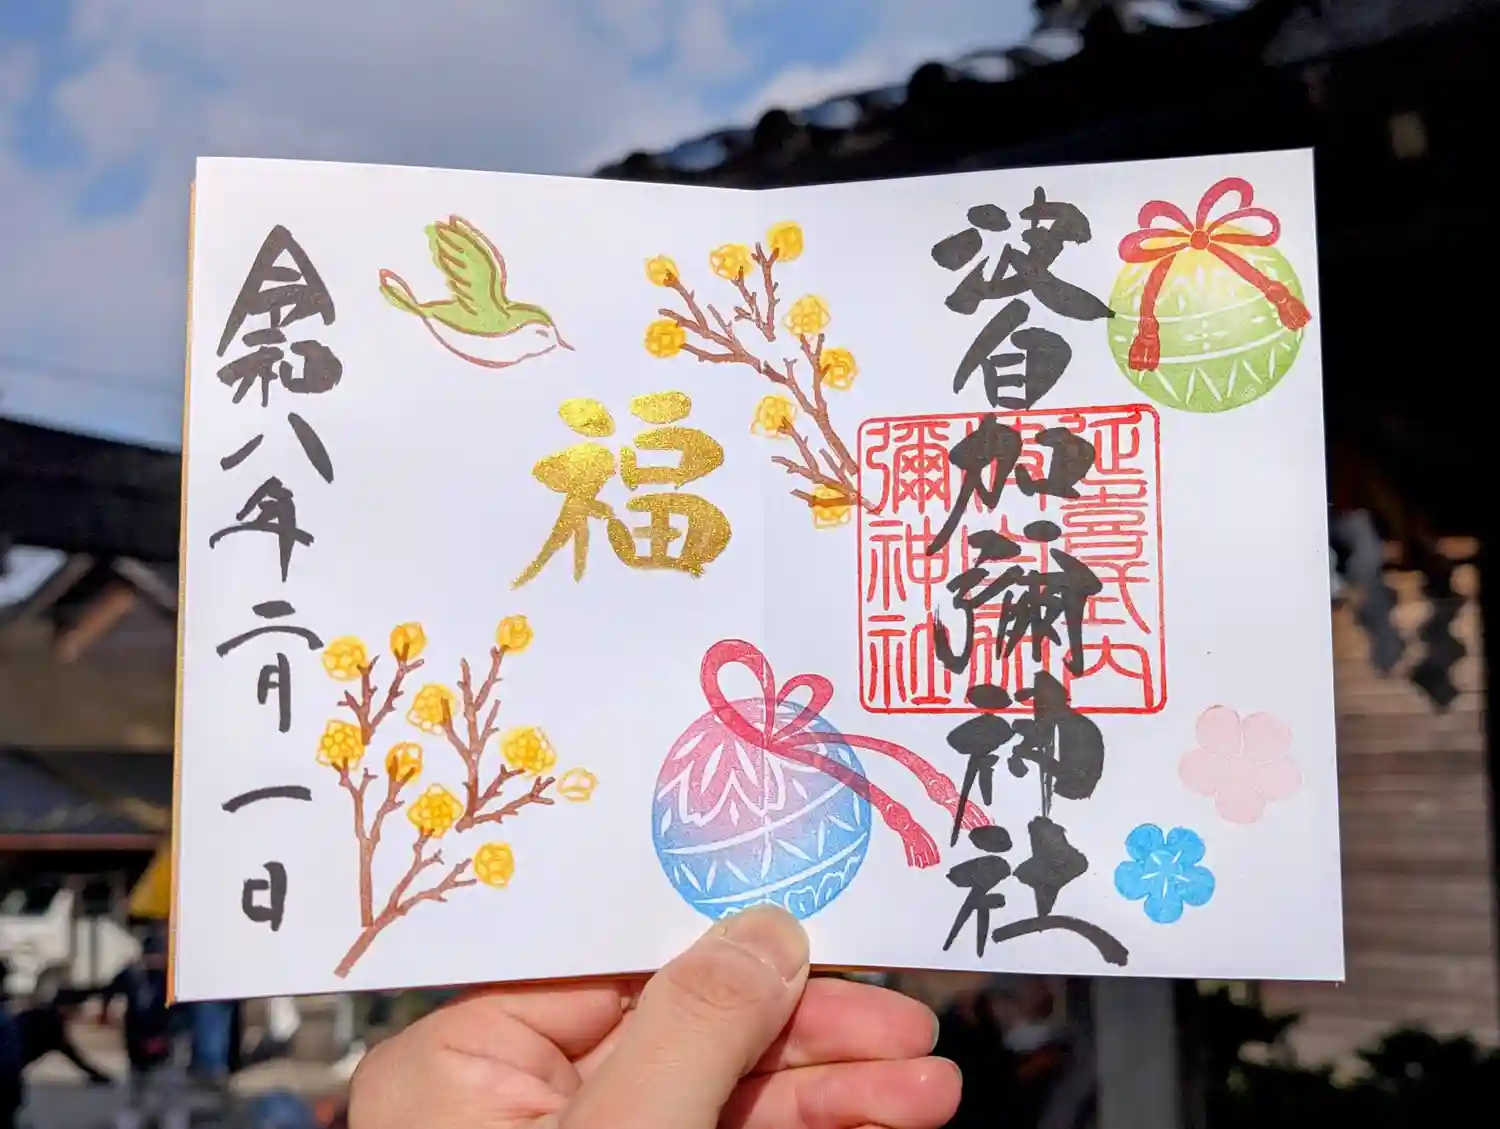 波自加彌神社
延喜式内
波自加
彌神社
福
令和八年二月一日